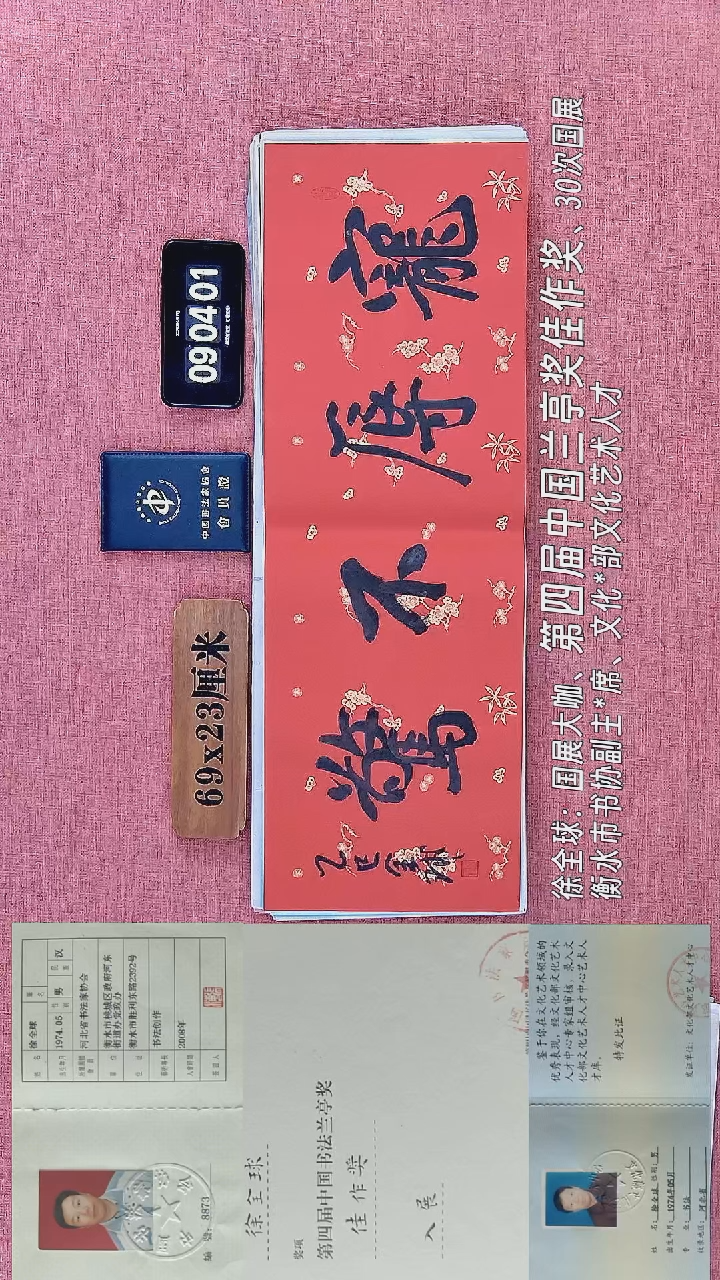 69x23厘米
中國書法家協會
會員證
09 04 01
寵辱不驚
乙巳全球
徐全球：国展大咖、第四届中国兰亭奖佳作奖、30次国展
衡水市书协副主*席、文化*部文化艺术人才
编号：8873
姓名 徐全球
1974.05 性别 男 民族 汉
河北省书法家协会
衡水市桃城区政府河东
街道办党政办
衡水市胜利东路2392号
书法创作
2008年
徐全球
奖项
第四届中国书法兰亭奖
佳作奖
入展
姓名：徐全球 性别：男
出生年月：1974年05月
专业：书法
鉴于你在文化艺术领域的
优秀表现，经文化部文化艺术
人才中心专家组审核，录入文
化部文化艺术人才中心艺术人
才库。
特发此证
发证单位：文化部文化艺术人才中心